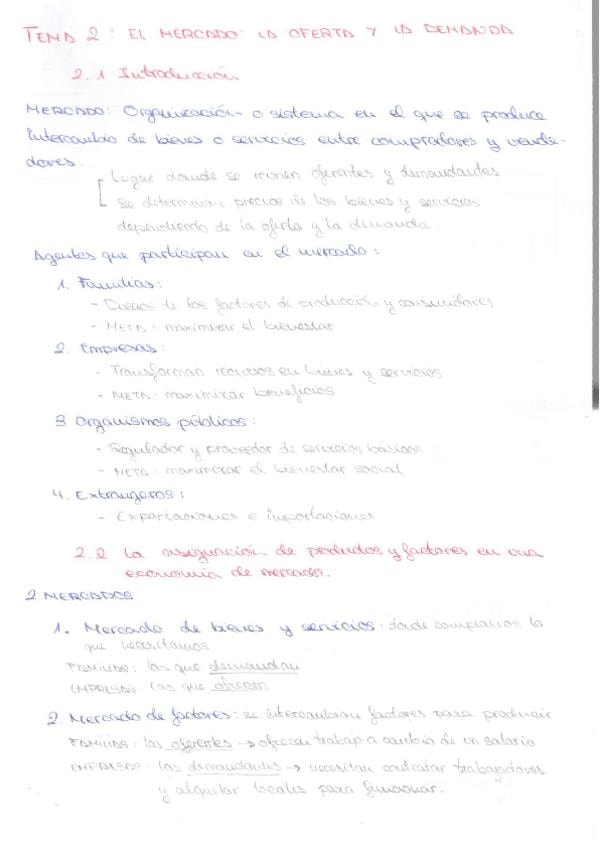 TEMA 2: EL MERCADO: LA OFERTA Y LA DEMANDA
2.1 Introducción
MERCADO: Organización o sistema en el que se produce
intercambio de bienes o servicios entre compradores y vende-
dores.
Lugar donde se reunen oferentes y demandantes
Se determinan precios de los bienes y servicios
dependiendo de la oferta y la demanda
Agentes que participan en el mercado:
1. Familias:
- Dueños de los factores de producción y consumidores
- META: maximizar el bienestar
2. Empresas:
- Transforman recursos en bienes y servicios
- META: maximizar beneficios
3 Organismos públicos:
- Regulador y proveedor de servicios básicos
- META: maximizar el bienestar social
4. Extrangeros:
- Exportaciones e importaciones
2.2 La asignación de productos y factores en una
economía de mercado.
2 MERCADOS
1. Mercado de bienes y servicios: donde compramos lo
que necesitamos
FAMILIAS: las que demandan
EMPRESAS: las que ofrecen
2. Mercado de factores: se intercambian factores para producir
FAMILIAS: las oferentes → ofrecen trabajo a cambio de un salario
EMPRESAS: las demandantes → necesitan contratar trabajadores
y alquilar locales para funcionar.